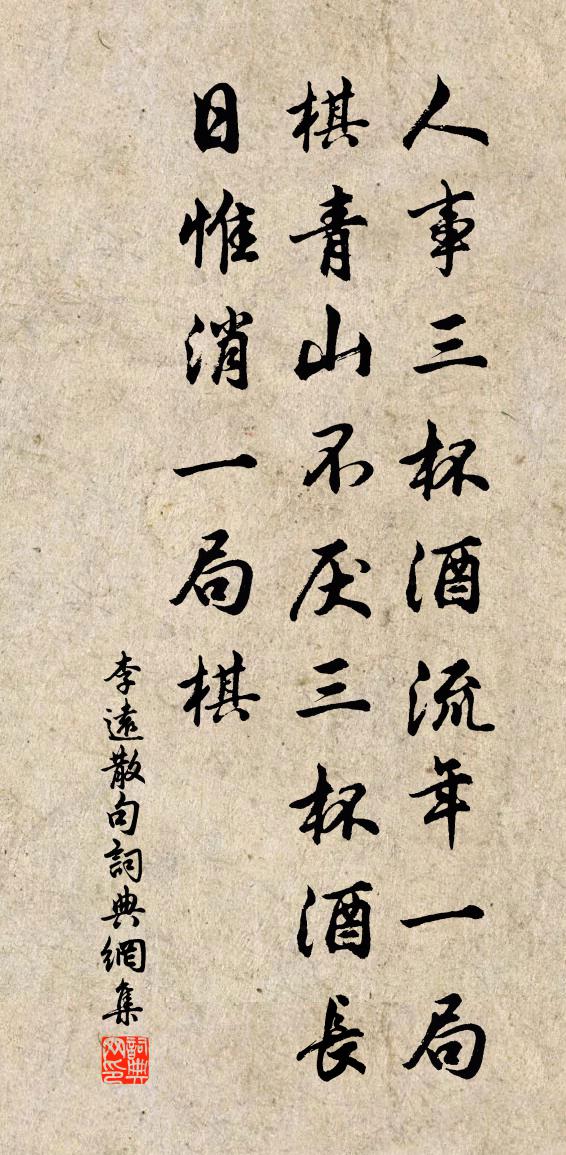 人事三杯酒流年一局
棋青山不厌三杯酒長
日惟消一局棋
李遠散句詞典網集
詞典网印